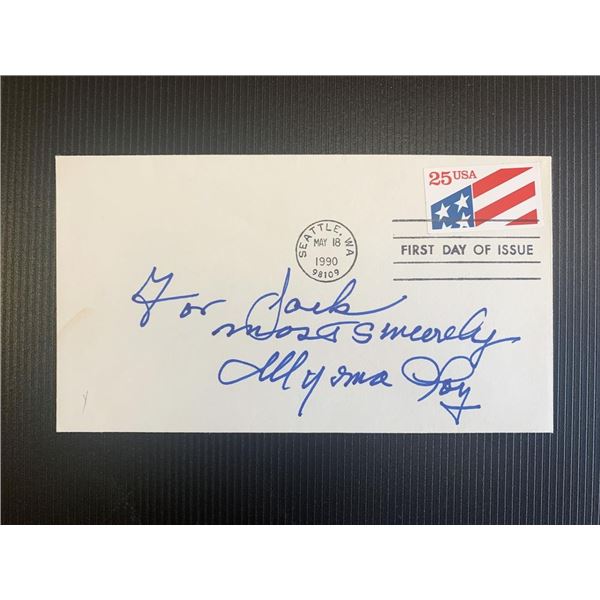 25 USA
SEATTLE, WA
MAY 18
1990
98109
FIRST DAY OF ISSUE
For Jack
most sincerely
Myrna Loy
y